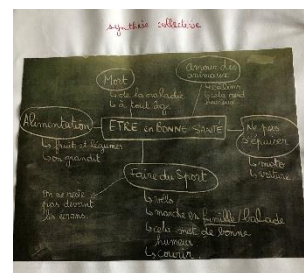 synthèse collective
Mort
↳ de la maladie
↳ à tout âge
Amour des
animaux
↳ cela rend
heureux
Alimentation
↳ fruit et légumes
↳ on grandit
ETRE en BONNE SANTÉ
Ne pas
s'épuiser
↳ moto
↳ voiture
Faire du Sport
↳ vélo
↳ marche en famille/balade
↳ cela met de bonne
humeur
↳ courir
on ne reste
pas devant
les écrans.